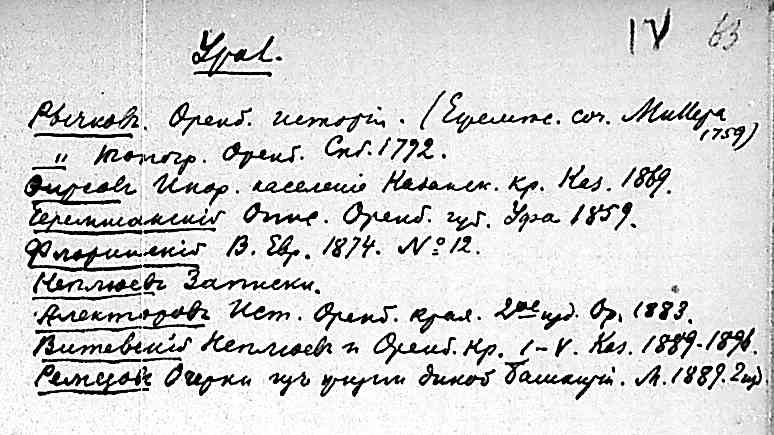 IV 63
Урал.
Рычковъ. Оренб. исторія. (Ежемѣс. соч. Миллера 1759)
" Топогр. Оренб. Спб. 1792.
Фирсовъ Инор. населеніе Казанск. кр. Каз. 1869.
Черемшанскій Опис. Оренб. губ. Уфа 1859.
Флоринскій В. Евр. 1874. № 12.
Неплюевъ Записки.
Алекторовъ Ист. Оренб. края. 2ое изд. Ор. 1883.
Витевскій Неплюевъ и Оренб. кр. I-V. Каз. 1889-1896.
Ремезовъ Очерки изъ жизни дикой Башкиріи. М. 1889. 2 изд.